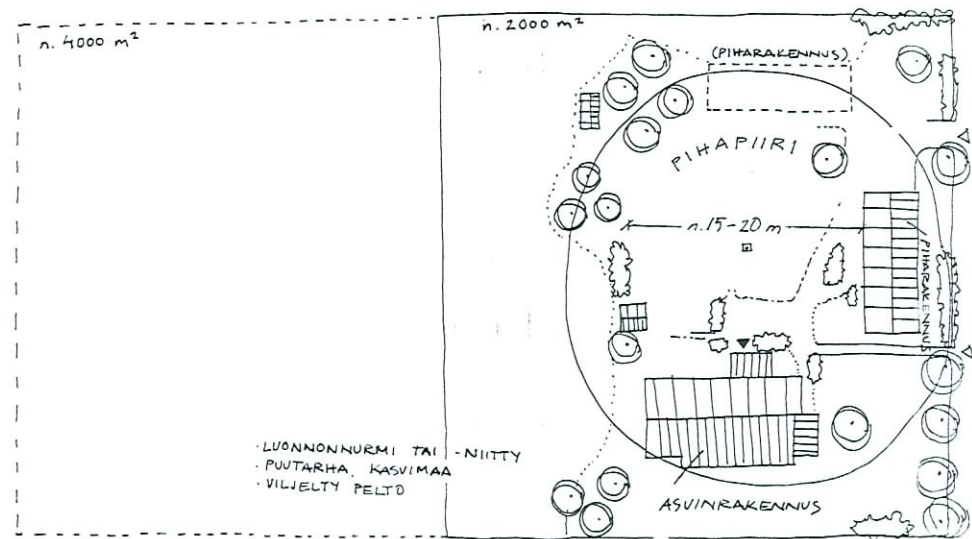 n. 4000 m²
n. 2000 m²
(PIHARAKENNUS)
PIHAPIIRI
n. 15-20 m
PIHARAKENNUS
- LUONNONNURMI TAI -NIITTY
- PUUTARHA, KASVIMAA
- VILJELTY PELTO
ASUINRAKENNUS